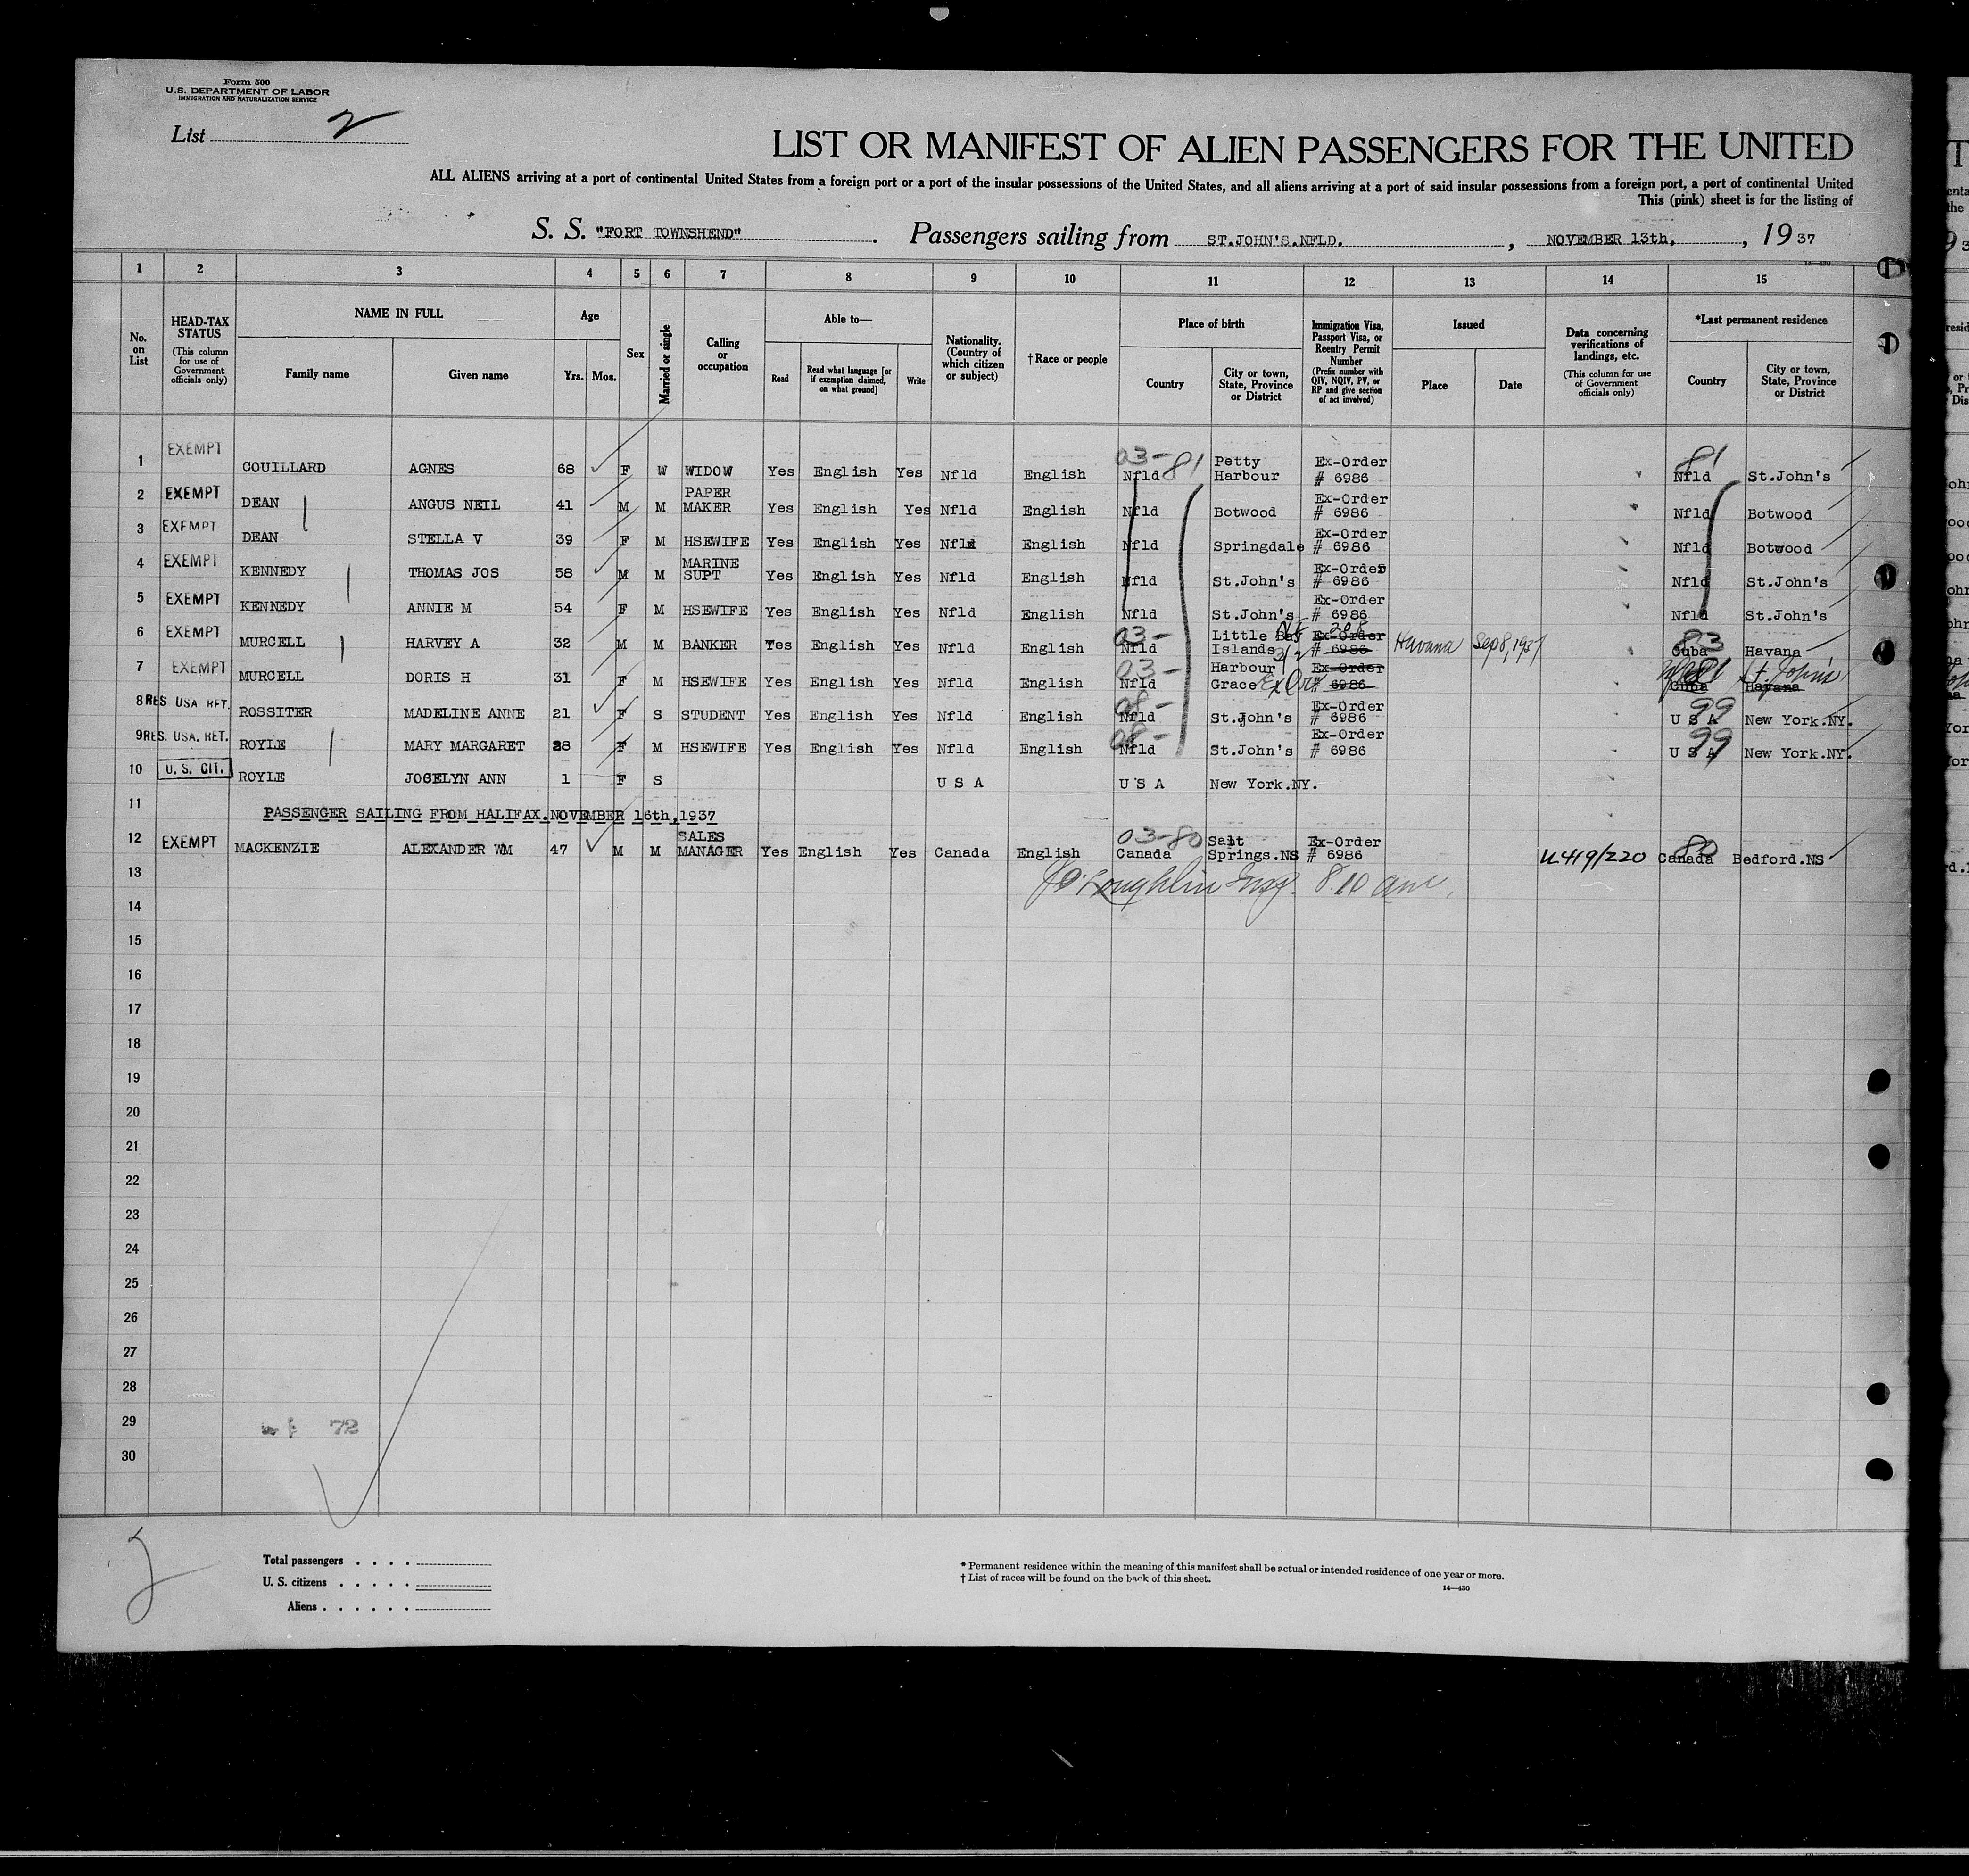 Form 500
U.S. DEPARTMENT OF LABOR
IMMIGRATION AND NATURALIZATION SERVICE
List 2
LIST OR MANIFEST OF ALIEN PASSENGERS FOR THE UNITED
ALL ALIENS arriving at a port of continental United States from a foreign port or a port of the insular possessions of the United States, and all aliens arriving at a port of said insular possessions from a foreign port, a port of continental United
This (pink) sheet is for the listing of
S. S. "FORT TOWNSHEND". Passengers sailing from ST.JOHN'S.NFLD. , NOVEMBER 13th, , 19 37
1 2 3 4 5 6 7 8 9 10 11 12 13 14 15
No. on List
HEAD-TAX STATUS (This column for use of Government officials only)
NAME IN FULL
Family name
Given name
Age
Yrs. Mos.
Sex
Married or single
Calling or occupation
Able to—
Read
Read what language [or if exemption claimed, on what ground]
Write
Nationality. (Country of which citizen or subject)
† Race or people
Place of birth
Country
City or town, State, Province or District
Immigration Visa, Passport Visa, or Reentry Permit Number (Prefix number with QIV, NQIV, PV, or RP and give section of act involved)
Issued
Place
Date
Data concerning verifications of landings, etc. (This column for use of Government officials only)
*Last permanent residence
Country
City or town, State, Province or District
1 EXEMPT COUILLARD AGNES 68 F W WIDOW Yes English Yes Nfld English 03-81 Nfld Petty Harbour Ex-Order # 6986 81 Nfld St.John's
2 EXEMPT DEAN ANGUS NEIL 41 M M PAPER MAKER Yes English Yes Nfld English Nfld Botwood Ex-Order # 6986 Nfld Botwood
3 EXEMPT DEAN STELLA V 39 F M HSEWIFE Yes English Yes Nfld English Nfld Springdale Ex-Order # 6986 Nfld Botwood
4 EXEMPT KENNEDY THOMAS JOS 58 M M MARINE SUPT Yes English Yes Nfld English Nfld St.John's Ex-Order # 6986 Nfld St.John's
5 EXEMPT KENNEDY ANNIE M 54 F M HSEWIFE Yes English Yes Nfld English Nfld St.John's Ex-Order # 6986 Nfld St.John's
6 EXEMPT MURCELL HARVEY A 32 M M BANKER Yes English Yes Nfld English 03- Nfld Little Bay Islands Ex-Order # 6986 Havana Sep 8, 1937 83 Cuba Havana
7 EXEMPT MURCELL DORIS H 31 F M HSEWIFE Yes English Yes Nfld English 03- Nfld Harbour Grace Ex-Order # 6986 81 Cuba Havana St. John's
8 RES USA RET. ROSSITER MADELINE ANNE 21 F S STUDENT Yes English Yes Nfld English 08- Nfld St.John's Ex-Order # 6986 99 U S A New York.NY.
9 RES. USA. RET. ROYLE MARY MARGARET 28 F M HSEWIFE Yes English Yes Nfld English 08- Nfld St.John's Ex-Order # 6986 99 U S A New York.NY.
10 U. S. CIT. ROYLE JOSELYN ANN 1 F S U S A U S A New York.NY.
11 PASSENGER SAILING FROM HALIFAX.NOVEMBER 16th,1937
12 EXEMPT MACKENZIE ALEXANDER WM 47 M M SALES MANAGER Yes English Yes Canada English 03-80 Canada Salt Springs.NS Ex-Order # 6986 U.419/220 80 Canada Bedford.NS
13 8.10 am.
14
15
16
17
18
19
20
21
22
23
24
25
26
27
28
29 72
30
2
Total passengers . . . .
U. S. citizens . . . . .
Aliens . . . . . .
* Permanent residence within the meaning of this manifest shall be actual or intended residence of one year or more.
† List of races will be found on the back of this sheet.
14—430